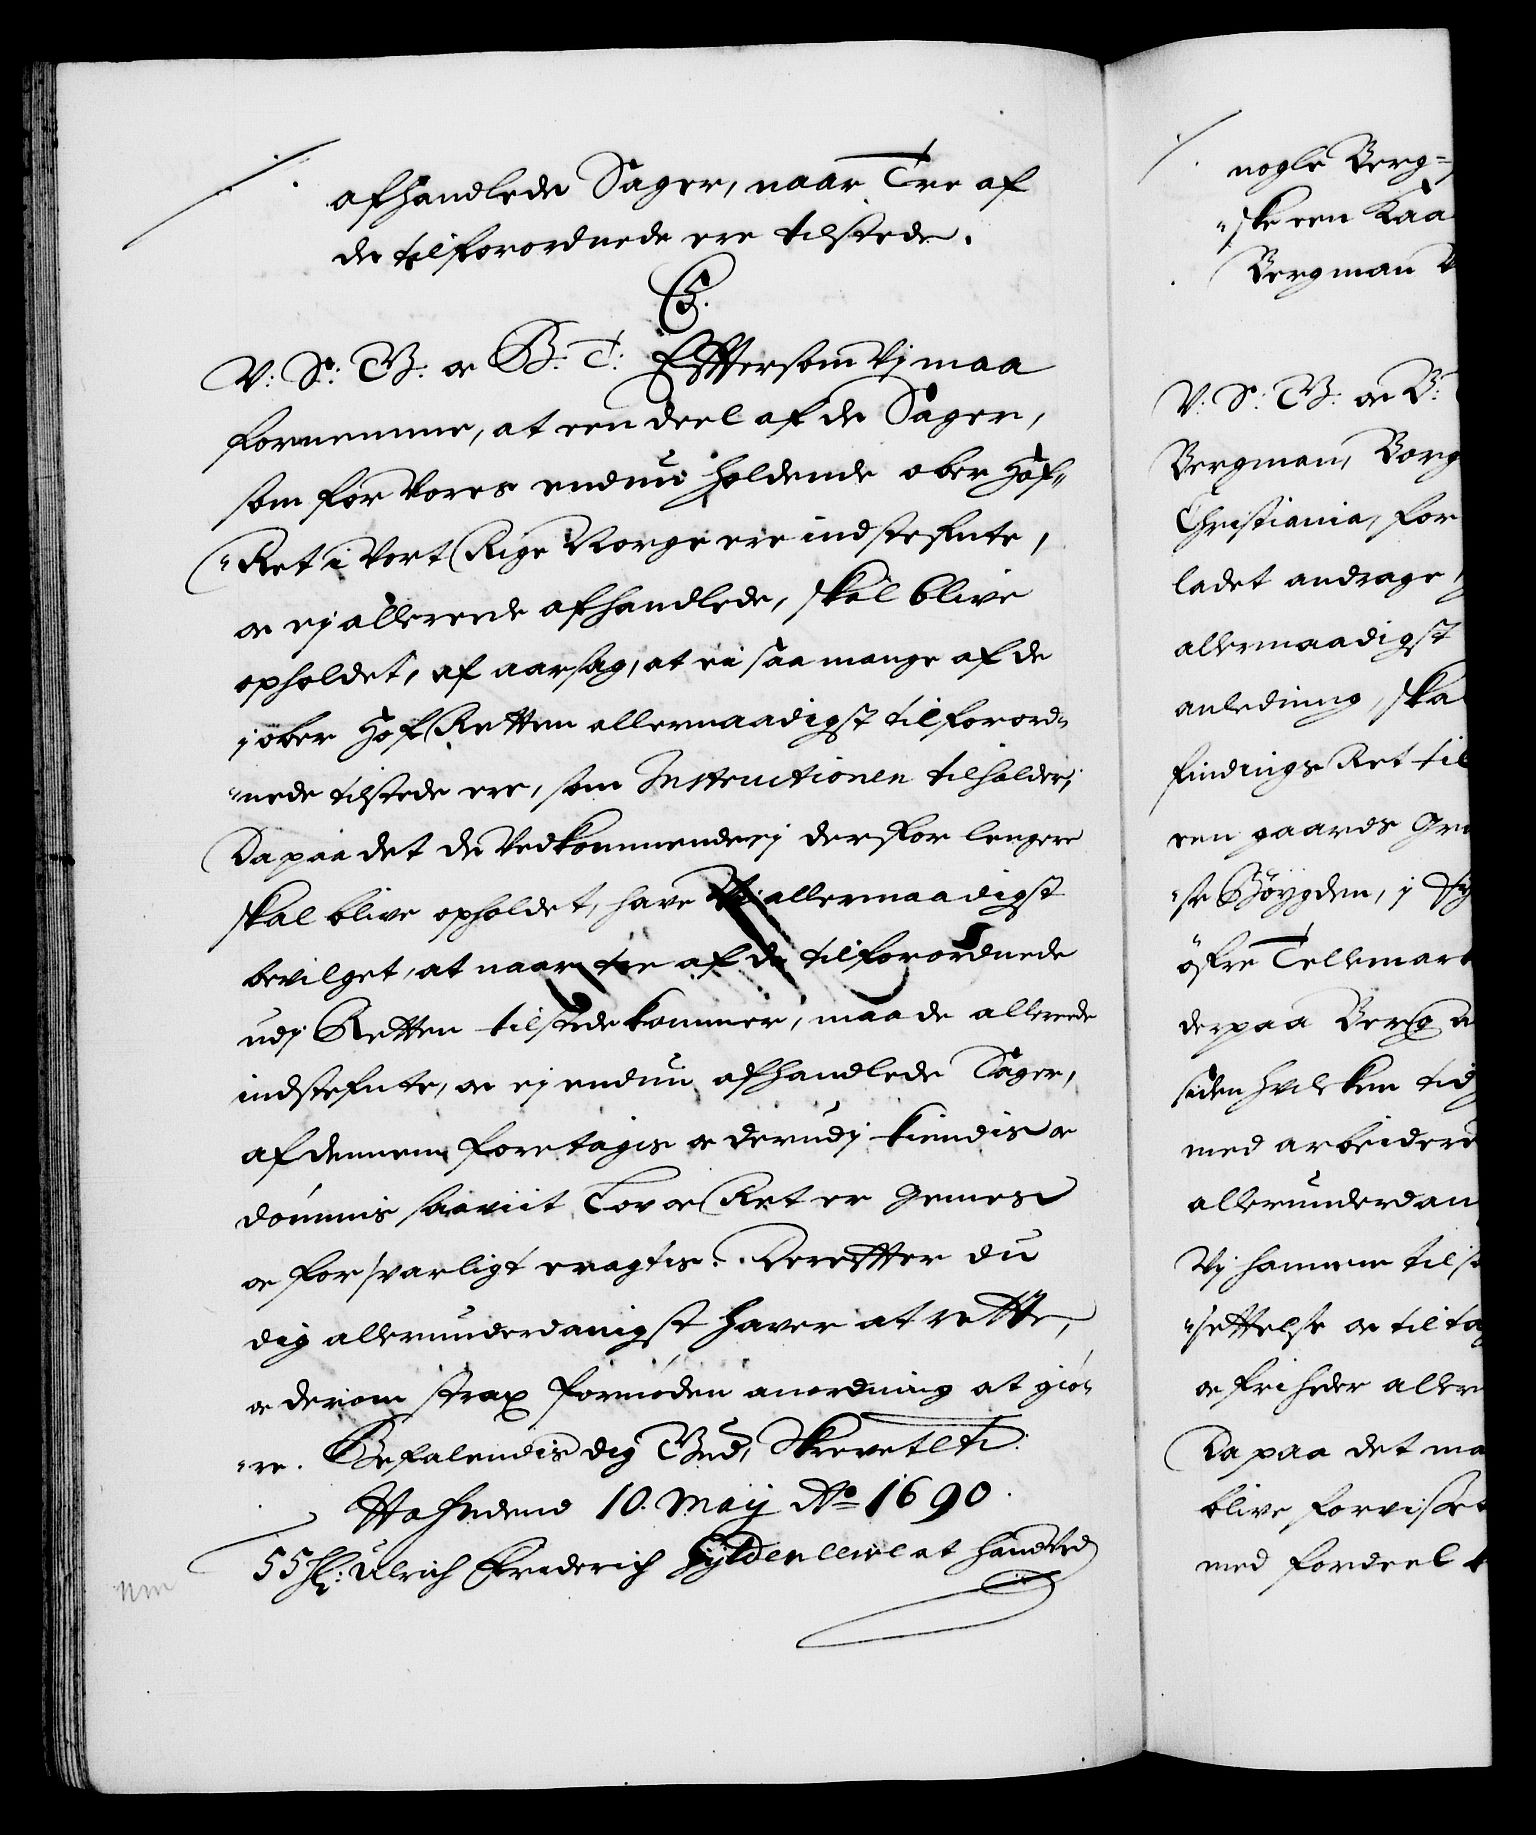 afhandlede Sager, naar Tre af
de tilforordnede ere tilstede.
C5.
V: S: G: og B: T: Eftersom Vj maa
fornemme, at een deel af de Sager,
som for Vores endnu holdende ober Hof-
"Ret i Vort Rige Norge ere indstefnte,
og ej allerede afhandlede, skal blive
opholdet, af aarsag, at ei saa mange af de
j ober Hof Retten allernaadigst tilforord-
"nede tilstede ere, som Instructionen tilholder;
Da paa det de Vedkommende ej derfor lengere
skal blive opholdet, have Vj allernaadigst
bevilget, at naar tre af de tilforordnede
udj Retten tilstede kommer, maa de allerede
indstefnte, og ej endnu afhandlede Sager,
af dennem foretagis og derudj kiendis og
dömmis saaviit Lov og Ret er gemes
og forsvarligt eragtis. Derefter du
dig allerunderdanigst haver at rette,
og derom strax fornöden anordning at giö-
"re. Befalendis dig Gud, Skrevet etc:
Hafniæ 10 Maij Ao 1690.
55 Hr: Ulrich Friderich Gyldenlewe at haand Ved
nogle Berg-
"ske een Kaa
Bergman
V: S: G: og B:
Bergman, Borg
Christiania, for
ladet andrage,
allernaadigst
anledning, ska
findings Ret til
een gaards Gr
"se Böygden, j
öfre Tellemark
derpaa Berg
siden hvilken tid
med arbeidere
allerunderdan
Vj hannem til
"settelse og til
og friheder aller
Da paa det ma
blive forvisset
med fordeel